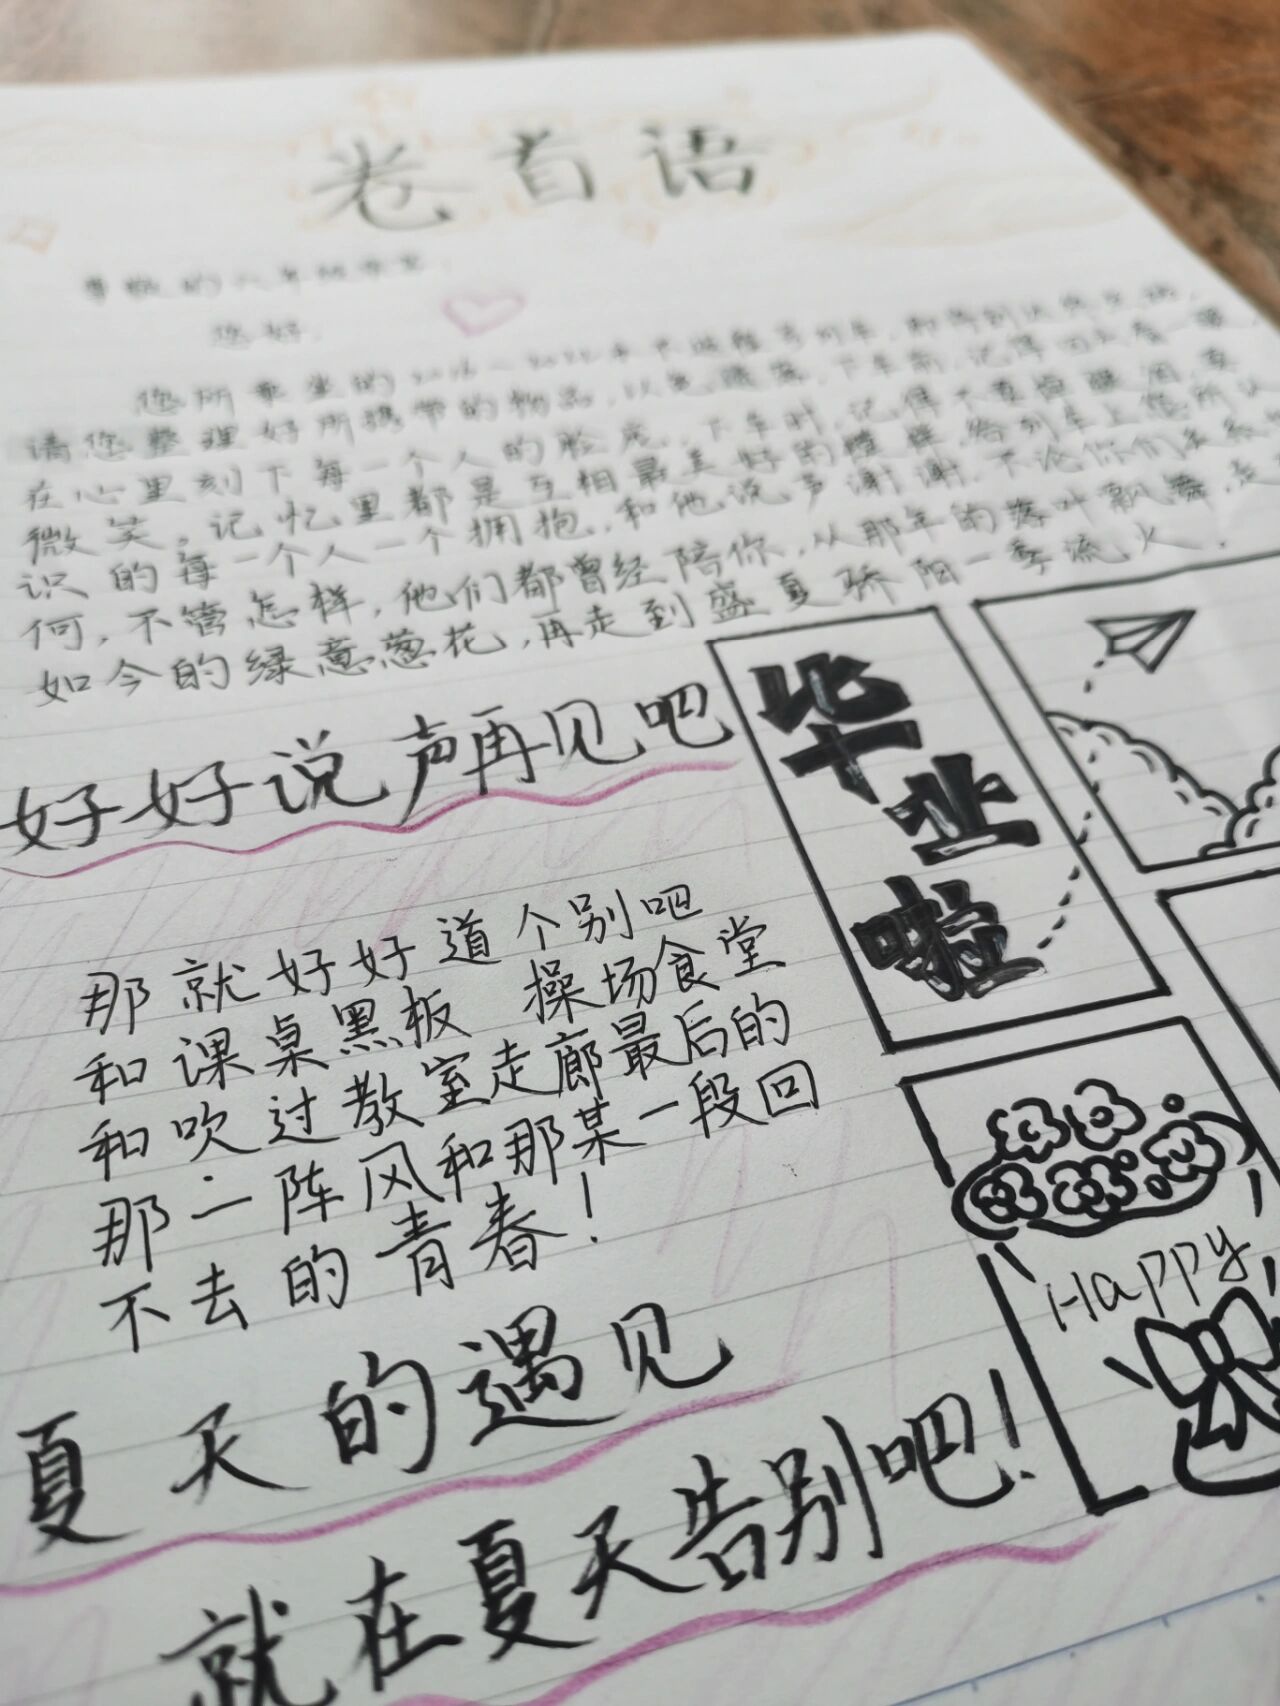 卷首语
尊敬的六年级学生
您好.
您所乘坐的
请您整理好所携带的物品,以免遗落.下车前,记得回头看一眼,
在心里刻下每一个人的脸庞.下车时,记得不要掉眼泪,要
微笑。记忆里都是互相最美好的模样.给列车上您所认
识的每一个人一个拥抱,和他说声谢谢.不论你们关系如
何,不管怎样,他们都曾经陪你,从那年的落叶飘舞,走
如今的绿意葱花,再走到盛夏骄阳一季流火.
好好说声再见吧
那就好好道个别吧
和课桌黑板 操场食堂
和吹过教室走廊最后的
那一阵风和那某一段回
不去的青春!
夏天的遇见
就在夏天告别吧!
毕业啦
Happy